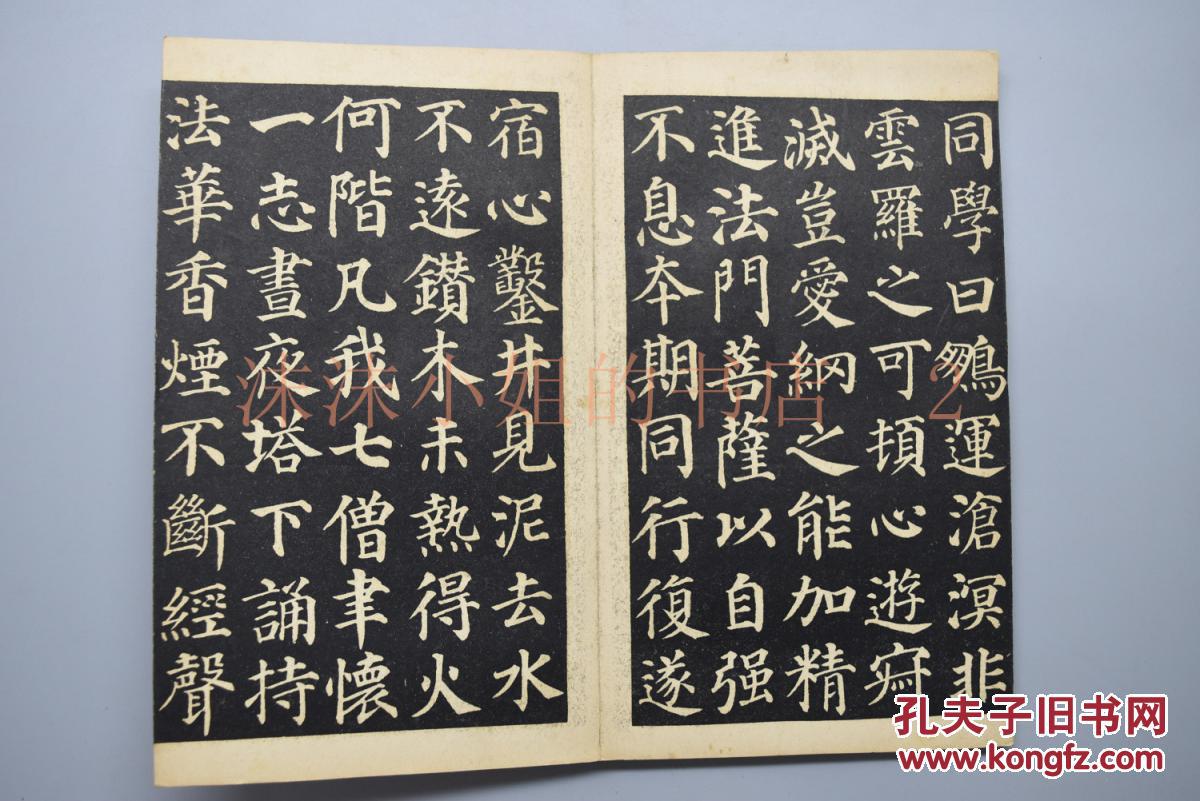 同學曰鵷運滄溟非
雲羅之可頓心遊寂
滅豈愛網之能加精
進法門菩薩以自强
不息本期同行復遂
宿心鑿井見泥去水
不遠鑽木未熱得火
何階凡我七僧聿懷
一志晝夜塔下誦持
法華香煙不斷經聲
沫沫小姐的书店 2
孔夫子旧书网
www.kongfz.com